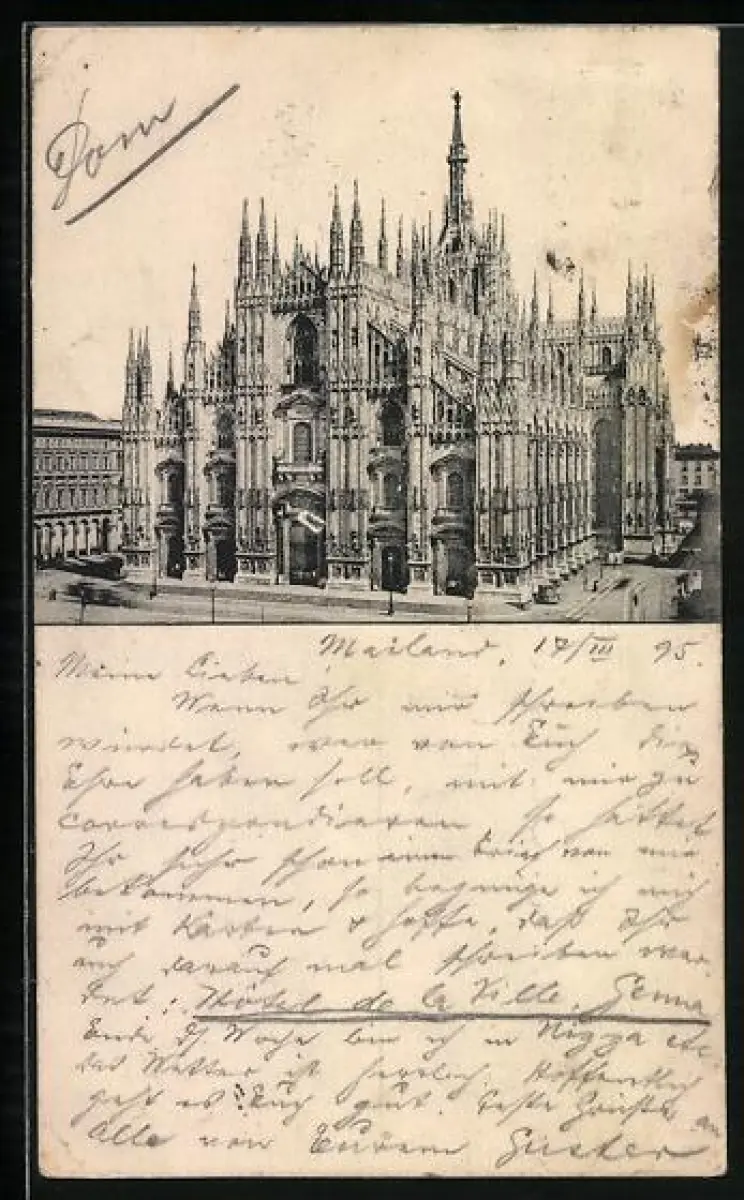 Dom
Mailand, 17/III 95.
Meine Lieben
Wenn Ihr mir schreiben
würdet, wer von Euch die
Ehre haben soll, mit mir zu
correspondieren so hättet
Ihr schon einen Brief von mir
bekommen, so begnüge ich mich
mit Karten & hoffe, daß Ihr
mir darauf mal schreiben wer-
det: Hôtel de la Ville, Genua
Ende d. Woche bin ich in Nizza etc
das Wetter ist herrlich. Hoffentlich
geht es Euch gut. Beste Grüsse an
Alle von Eurem Gustav